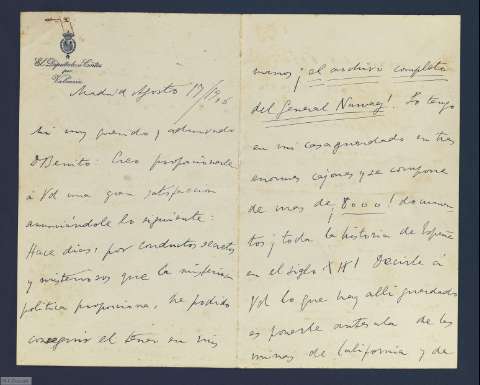 El Diputado á Cortes
por
Valencia
Madrid Agosto 19/1906
Mi muy querido y admirado
D Benito: Creo proporcionarle
á Vd una gran satisfaccion
anunciándole lo siguiente:
Hace dias, por conductos secretos
y misteriosos que la
politica proporciona, he podido
conseguir el tener en mis
manos ¡el archivo completo
del General Narvaez! Lo tengo
en mi casa guardado en tres
enormes cajones y se compone
de mas de ¡8000! documen-
tos ¡toda la historia de España
en el siglo XIX! Decirle á
Vd lo que hay alli guardado
es ponerle ante la de las
minas de California y de